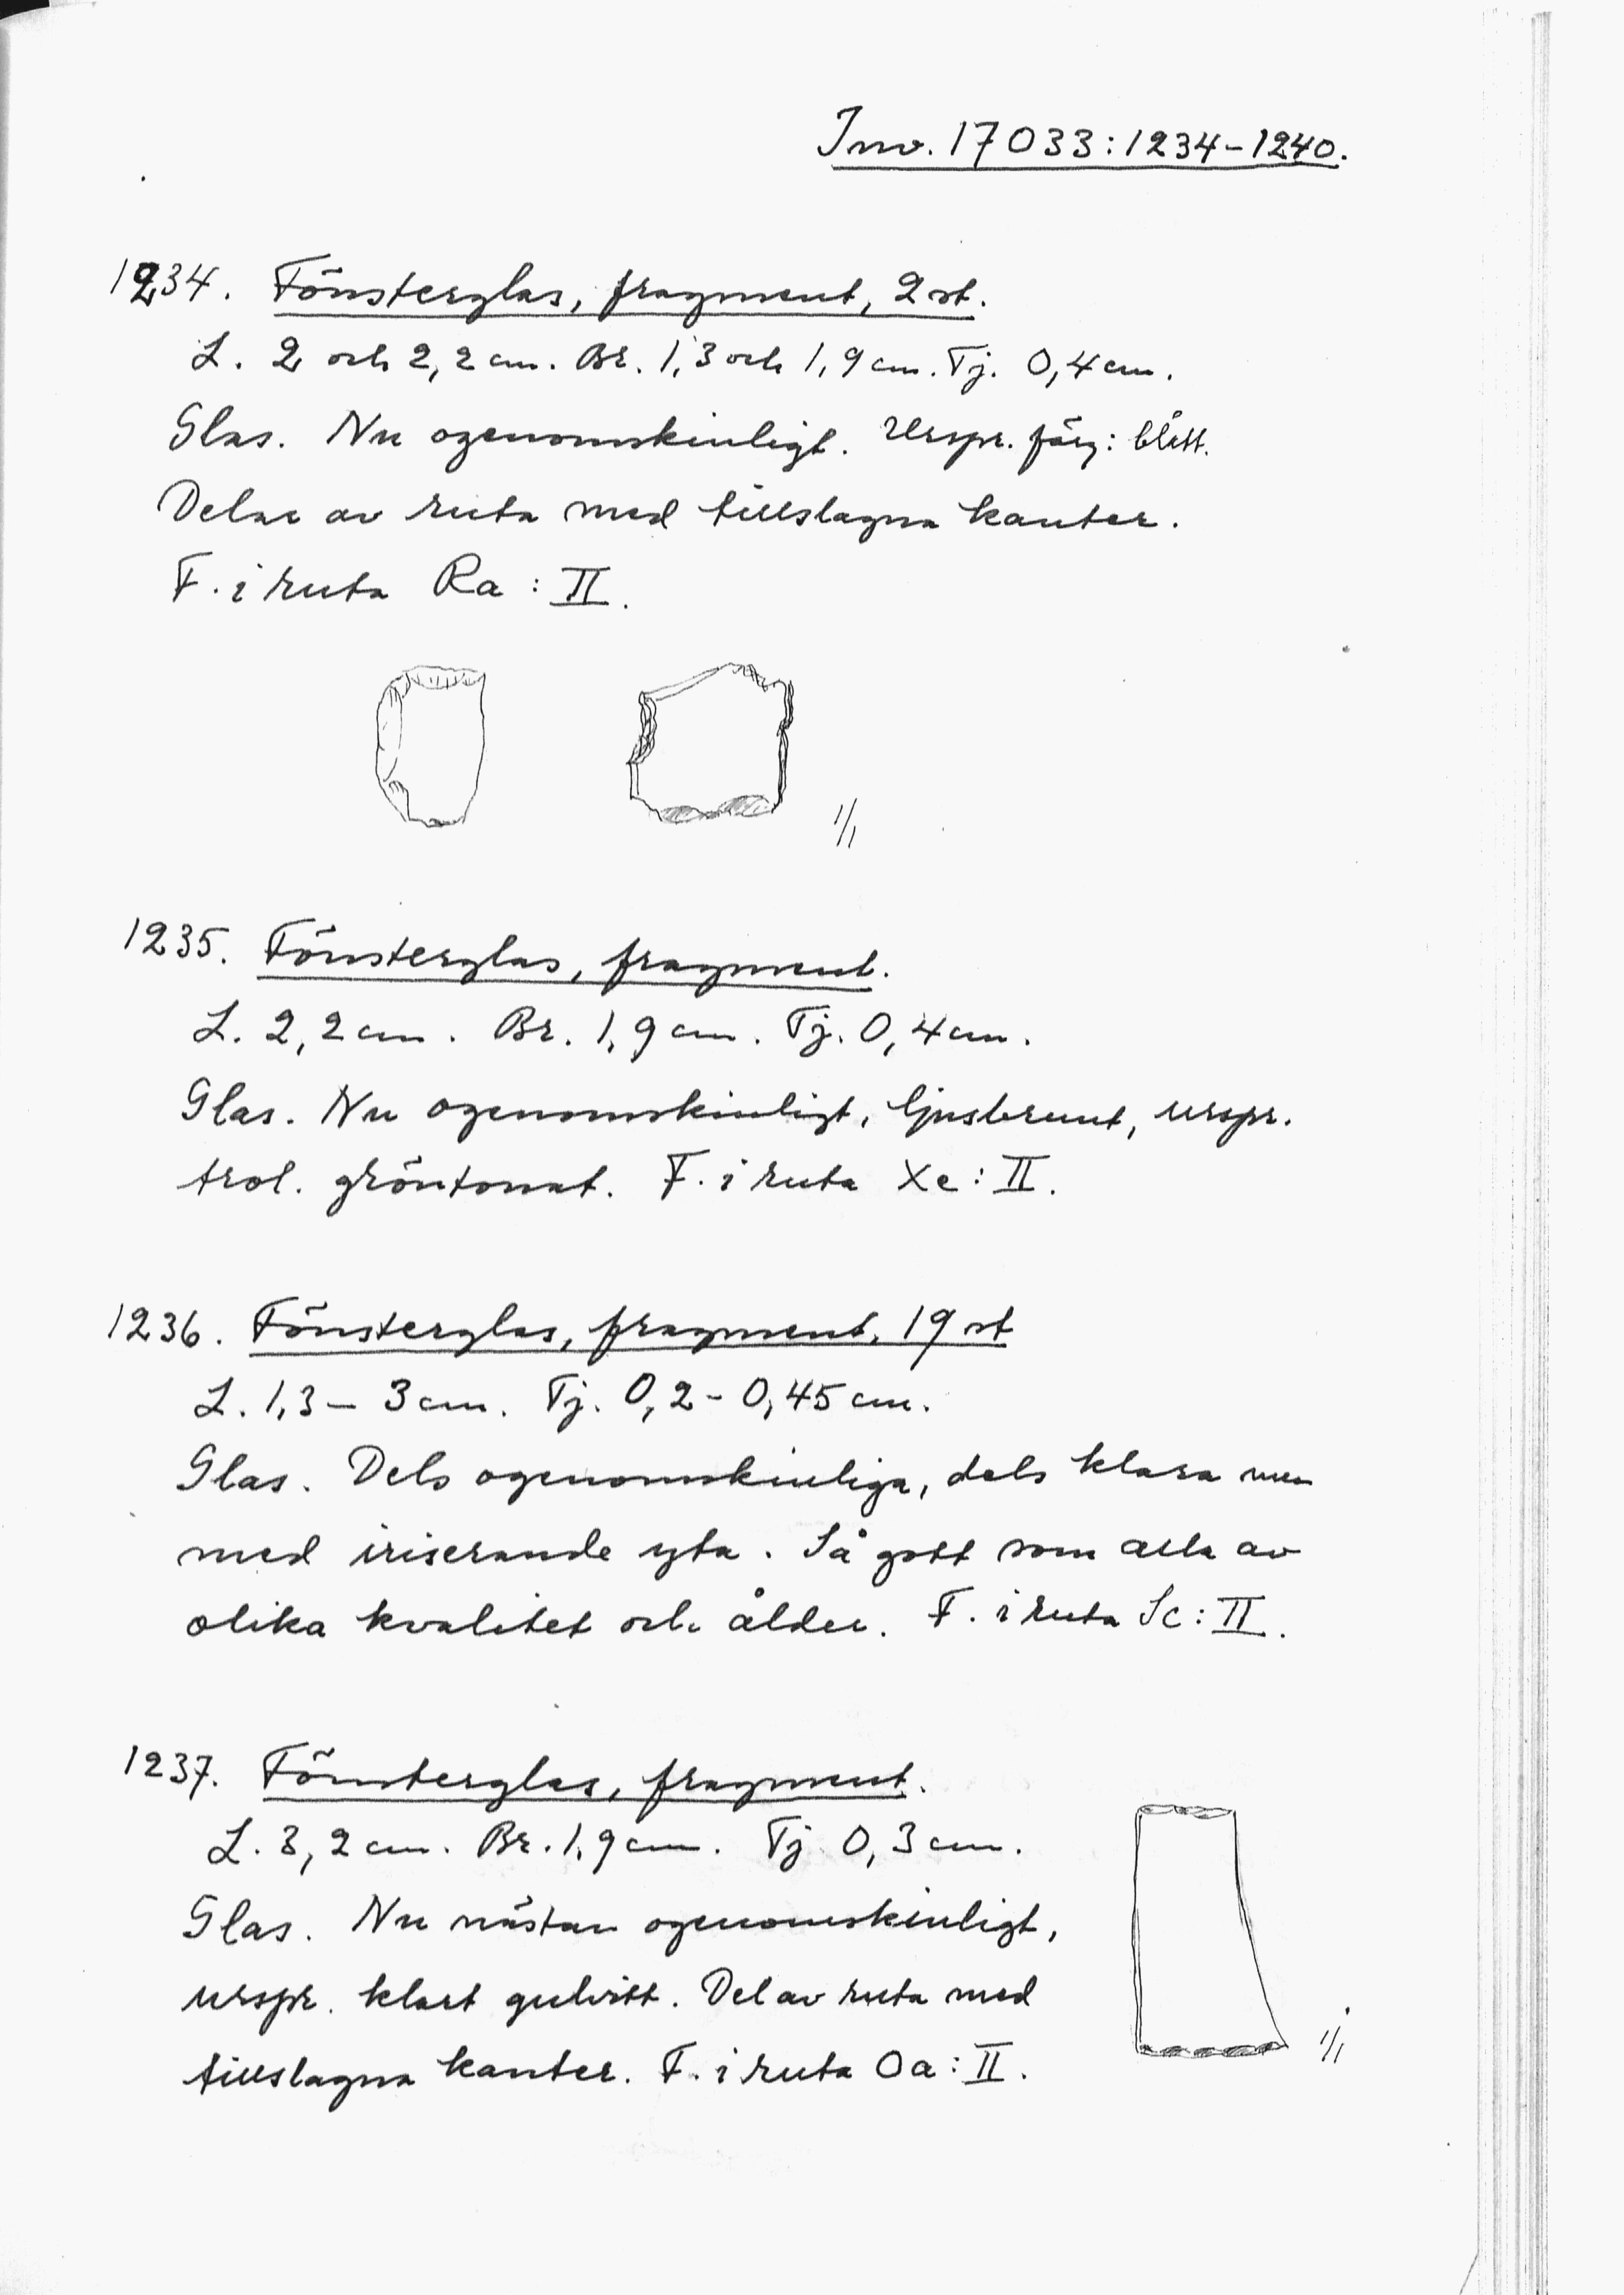 Inv. 17033:1234-1240.
1234. Fönsterglas, fragment, 2 st.
L. 2 och 2,2 cm. Br. 1,3 och 1,9 cm. Tj. 0,4 cm.
Glas. Nu ogenomskinligt. Urspr. färg: blått.
Delar av ruta med tillslagna kanter.
F. i ruta Ra: II.
1/1
1235. Fönsterglas, fragment.
L. 2,2 cm. Br. 1,9 cm. Tj. 0,4 cm.
Glas. Nu ogenomskinligt, ljusbrunt, urspr.
trol. gröntonat. F. i ruta Xe: II.
1236. Fönsterglas, fragment, 19 st
L. 1,3 - 3 cm. Tj. 0,2 - 0,45 cm.
Glas. Dels ogenomskinliga, dels klara men
med iriserande yta. Så gott som alla av
olika kvalitet och ålder. F. i ruta Sc: II.
1237. Fönsterglas, fragment.
L. 3,2 cm. Br. 1,9 cm. Tj 0,3 cm.
Glas. Nu nästan ogenomskinligt,
urspr. klart gulvitt. Del av ruta med
tillslagna kanter. F. i ruta Oa: II.
1/1